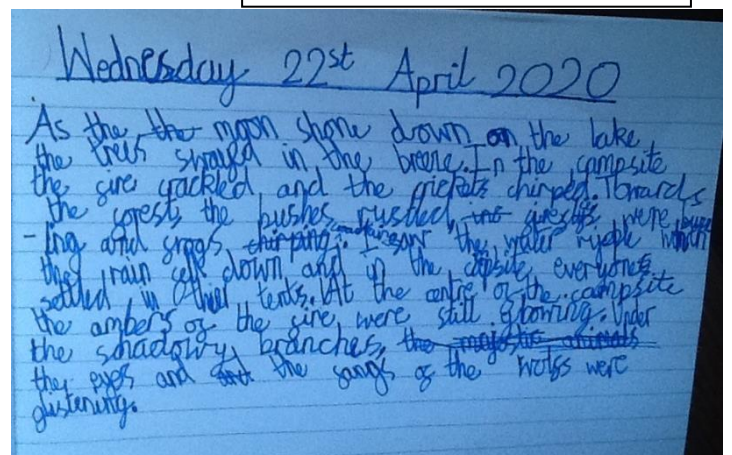 Wednesday 22st April 2020
As the the moon shone down on the lake,
the trees swayed in the breeze. In the campsite
the fire crackled, and the crickets chirped. Towards
the forest, the bushes rustled, fireflys were buzz
-ing and frogs chirping. I saw the water ripple when
the rain fell down, and in the campsite, everyone
settled in their tents. At the centre of the campsite
the ambers of the fire were still glowing. Under
the schadowy branches, the majestic animals
the eyes and the fangs of the wolfs were
glistening.